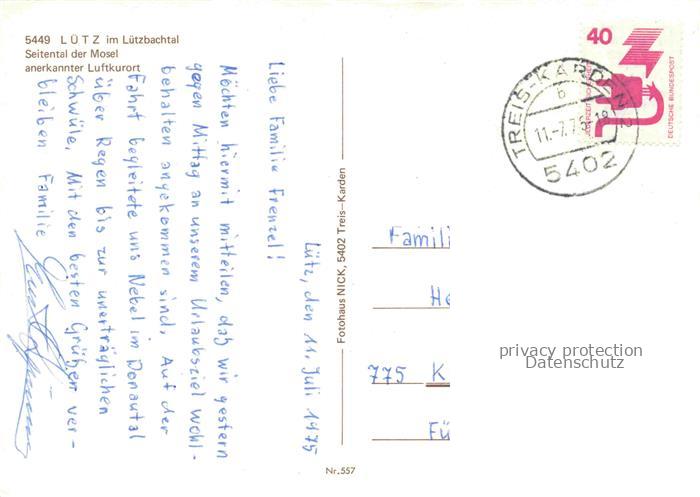 5449 LÜTZ im Lützbachtal
Seitental der Mosel
anerkannter Luftkurort
Lütz, den 11. Juli 1975
Liebe Familie Frenzel!
Möchten hiermit mitteilen, daß wir gestern
gegen Mittag an unserem Urlaubsziel wohl-
behalten angekommen sind. Auf der
Fahrt begleitete uns Nebel im Donautal
über Regen bis zur unerträglichen
Schwüle. Mit den besten Grüßen ver-
bleiben Familie
Fotohaus NICK, 5402 Treis-Karden
Nr. 557
40
DEUTSCHE BUNDESPOST
TREIS-KARDEN 2
b
11.-7.75-18
5402
Famili
He
775 K
Fü
privacy protection
Datenschutz